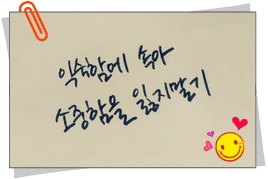 익숙함에 속아
소중함을 잃지말기